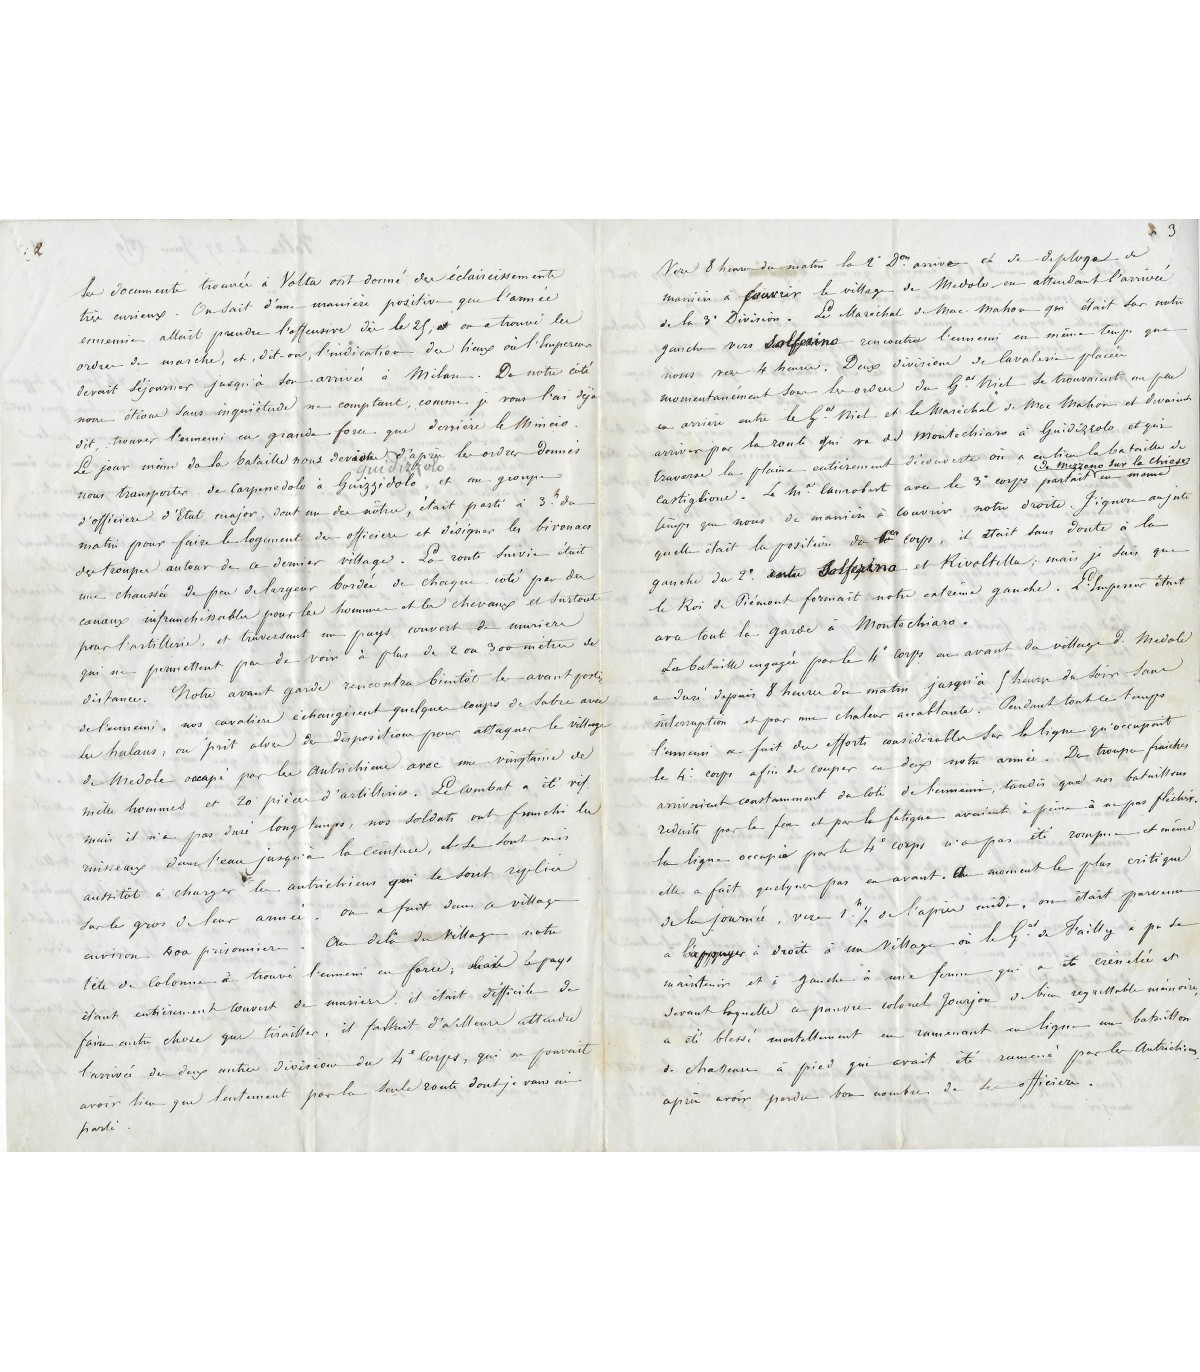 2
Les documents trouvés à Volta ont donné des éclaircissements
très curieux. On sait d'une manière positive que l'armée
ennemie allait prendre l'offensive dès le 25, et on a trouvé les
ordres de marche, et, dit-on, l'indication des lieux où l'Empereur
devait séjourner jusqu'à son arrivée à Milan. De notre côté
nous étions sans inquiétude ne comptant, comme je vous l'ai déjà
dit, trouver l'ennemi en grande force que derrière le Mincio.
Le jour même de la bataille nous devions d'après les ordres donnés
Guidizzolo
nous transporter de Carpenedolo à Guizzidolo et un groupe
d'officiers d'Etat major, dont un des nôtres, était parti à 3h du
matin pour faire le logement des officiers et désigner les bivouacs
des troupes autour de ce dernier village. La route suivie était
une chaussée de peu de largeur bordée de chaque coté par des
canaux infranchissables pour les hommes et les chevaux et surtout
pour l'artillerie, et traversant un pays couvert de muriers
qui ne permettent pas de voir à plus de 2 ou 300 mètres de
distance. Notre avant garde rencontra bientôt les avant postes
de l'ennemi, nos cavaliers échangèrent quelques coups de sabre avec
les hulans, on prit alors des dispositions pour attaquer le village
de Medole occupé par les autrichiens avec une vingtaine de
mille hommes et 20 pièces d'artillerie. Le combat a été vif.
mais il n'a pas duré long temps, nos soldats ont franchi les
ruisseaux dans l'eau jusqu'à la ceinture, et se sont mis
aussitôt à charger les autrichiens qui se sont repliés
sur le gros de leur armée. on a fait dans ce village
environ prisonniers. Au delà du village notre
tête de colonne a trouvé l'ennemi en force; le pays
étant entièrement couvert de muriers, il était difficile de
faire autre chose que tirailler, il fallait d'ailleurs attendre
l'arrivée des deux autres divisions du 4e Corps, qui ne pouvait
avoir lieu que lentement par la seule route dont je vous ai
parlé.
3
Vers 8 heures du matin la 2e Don arrive et se deploye de
manière à couvrir le village de Medole en attendant l'arrivée
de la 3e Division. Le Maréchal de Mac Mahon qui était sur notre
gauche vers Solferino rencontra l'ennemi en même temps que
nous vers 4 heures. Deux divisions de Cavalerie placées
momentanément sous les ordres du Gal Niel se trouvaient un peu
en arrière entre le Gal Niel et le Maréchal de Mac Mahon et devaient
arriver par la route qui va de Montechiaro à Guidizzolo et qui
traverse la plaine entièrement découverte où a eu lieu la bataille de
de Mezzano sur la Chiese
Castiglione. Le Mal Canrobert avec le 3e corps partait en même
temps que nous de manière à couvrir notre droite. J'ignore au juste
quelle était la position du 1er corps, il était sans doute à la
gauche du 2e. entre Solferino et Rivoltella; mais je sais que
le Roi de Piémont formait notre extrème gauche. L'Empereur était
avec tout la garde à Montechiaro.
La bataille engagée par le 4e corps en avant du village de Medole
a duré depuis 8 heures du matin jusqu'à heures du soir sans
interruption et par une chaleur accablante. Pendant tout ce temps
l'ennemi a fait des efforts considérables sur la ligne qu'occupait
le 4e corps afin de couper en deux notre armée. Des troupes fraiches
arrivaient constamment du coté de l'ennemi, tandis que nos bataillons
réduits par le feu et par la fatigue avaient à peine à ne pas fléchir.
La ligne occupée par le 4e corps n'a pas été rompue et même
elle a fait quelques pas en avant. Au moment le plus critique
de la journée, vers 1h ½ de l'après midi, on était parvenu
a s'appuyer à droite à un village où le Gal de Failly a pu se
maintenir et à gauche à une ferme qui a été crénelée et
devant laquelle ce pauvre colonel Jourjon de bien regrettable mémoire,
a été blessé mortellement en ramenant en ligne un bataillon
de chasseurs à pied qui avait été ramené par les Autrichiens,
après avoir perdu bon nombre de ses officiers.